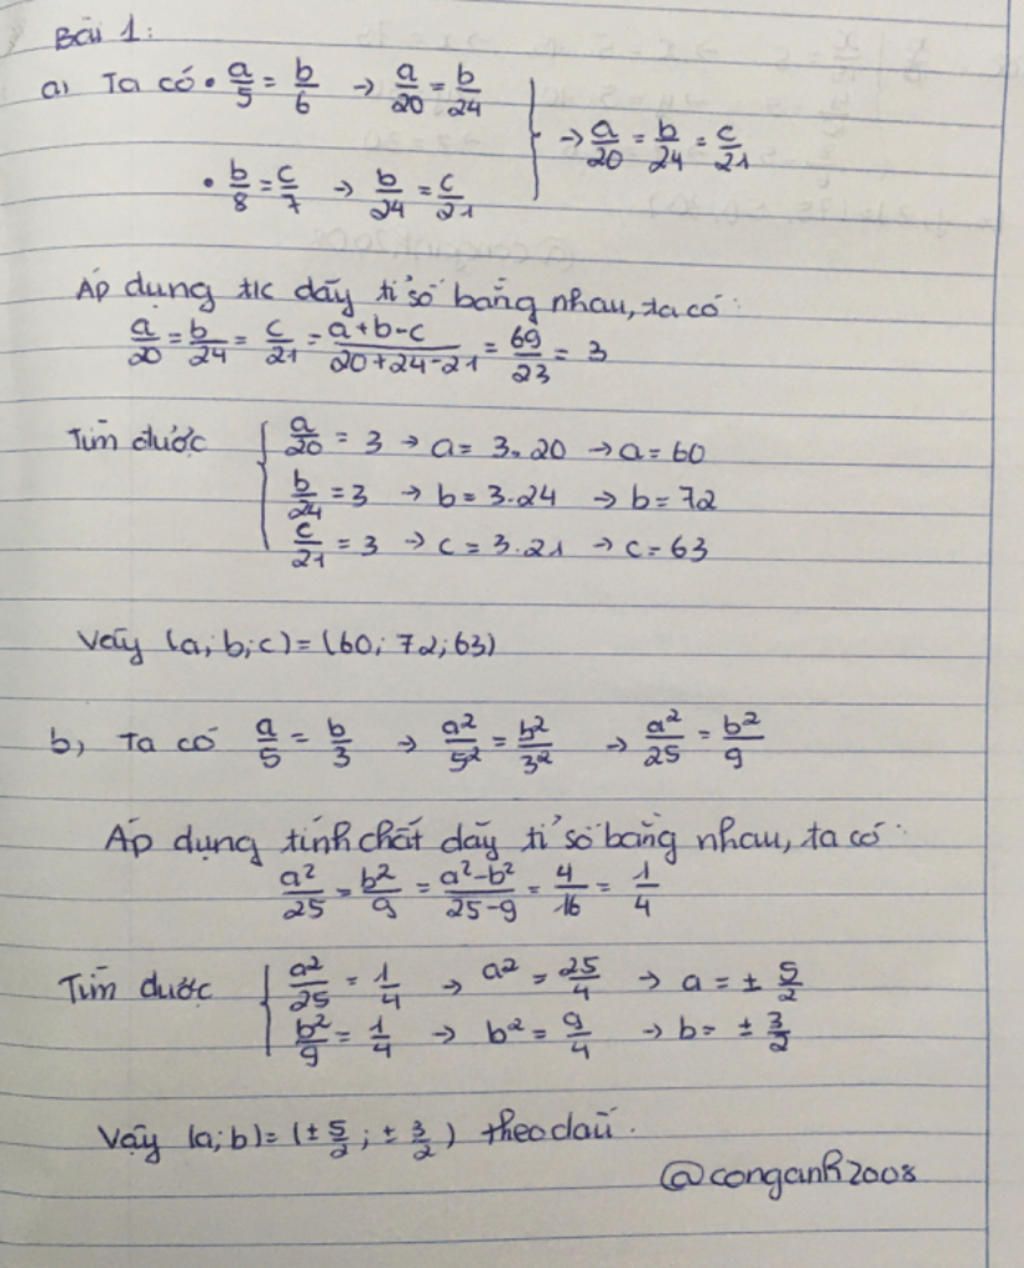 Bài 1:
a) Ta có • a/5 = b/6 → a/20 = b/24
• b/8 = c/7 → b/24 = c/21
} → a/20 = b/24 = c/21
Áp dụng t/c dãy tỉ số bằng nhau, ta có:
a/20 = b/24 = c/21 = (a+b-c)/(20+24-21) = 69/23 = 3
Tìm được { a/20 = 3 → a = 3.20 → a = 60
b/24 = 3 → b = 3.24 → b = 72
c/21 = 3 → c = 3.21 → c = 63
Vậy (a; b; c) = (60; 72; 63)
b, Ta có a/5 = b/3 → a²/5² = b²/3² → a²/25 = b²/9
Áp dụng tính chất dãy tỉ số bằng nhau, ta có:
a²/25 = b²/9 = (a²-b²)/(25-9) = 4/16 = 1/4
Tìm được { a²/25 = 1/4 → a² = 25/4 → a = ± 5/2
b²/9 = 1/4 → b² = 9/4 → b = ± 3/2
Vậy (a; b) = (± 5/2 ; ± 3/2) theo dấu.
@conganh2008